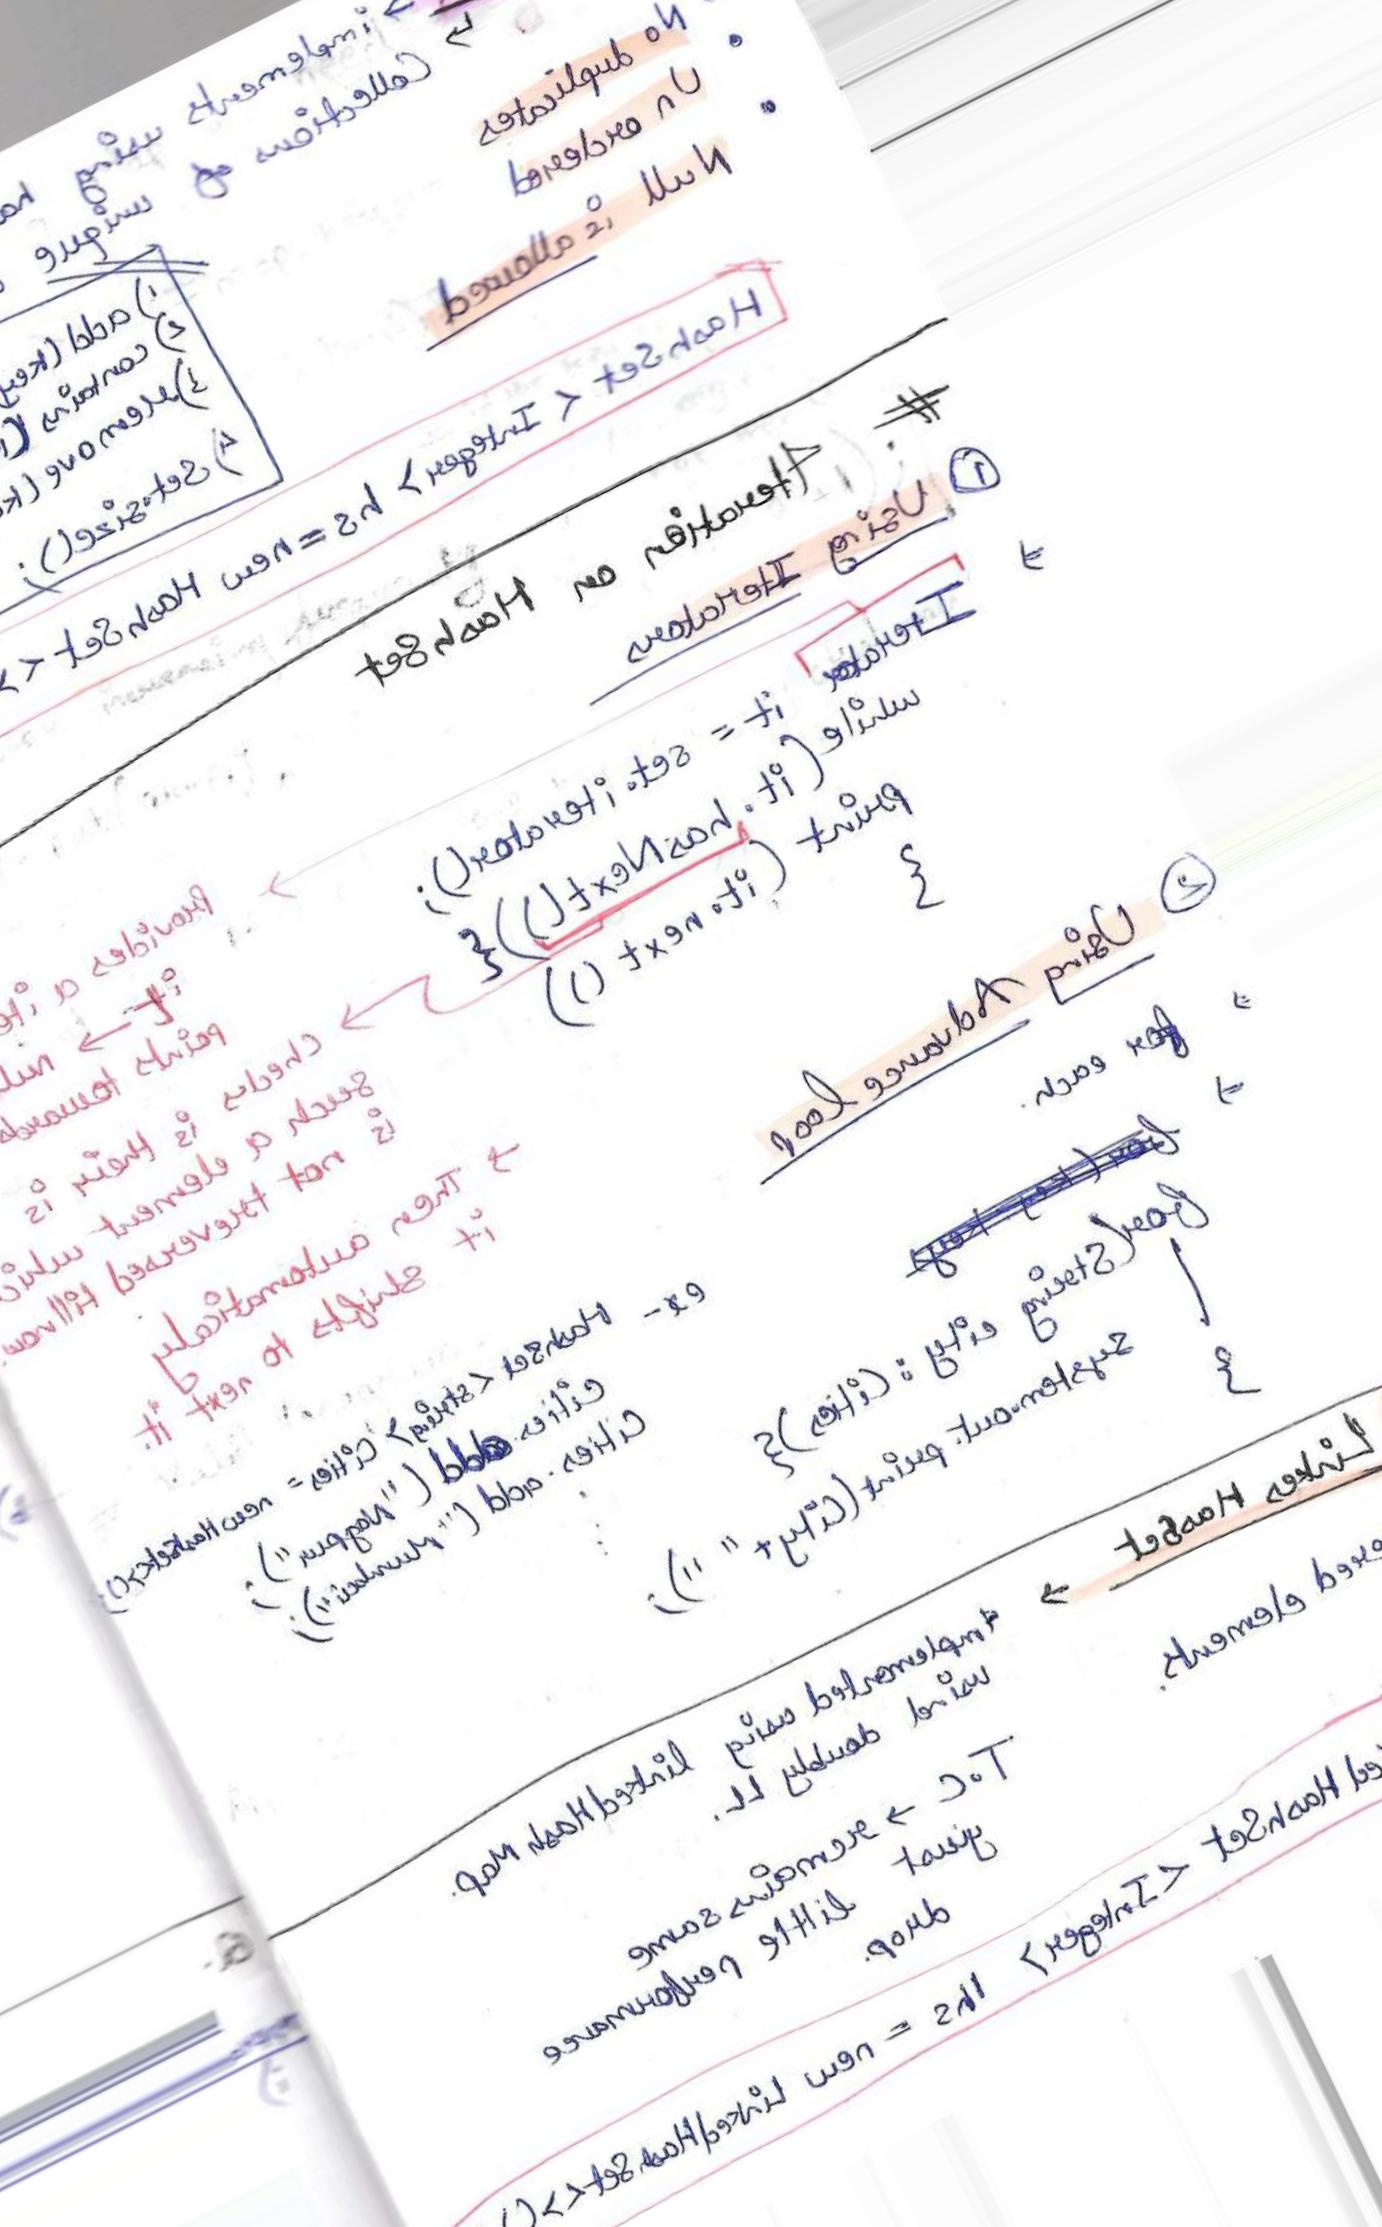 → implements using ha
→ Collections of unique
• No duplicates
• Un ordered
Null is allowed
1) add(key
2) contains(
3) remove(k
4) Set.size();
HashSet <Integer> hs = new HashSet <>
# Iteration on HashSet
① Using Iterators
→ Iterator it = set.iterator();
while(it.hasNext()){
print (it.next())
}
→ Provides a ite
it → nul
points towards
→ checks is their is
such a element whic
is not treversed till now.
→ Then automatically
it shifts to next it.
② Using Advance Loop
→ for each.
→ for(String city : Cities){
System.out.print(City+" ");
}
ex- HashSet <String> Cities = new HashSet<>();
Cities.add("Nagpur");
Cities.add("Mumbai");
Linkes HasSet
→ ered elements.
Implemented using linkedHashMap.
using doubly LL.
T.C → remains same
just little performance
drop.
ed HashSet <Integer> lhs = new LinkedHashSet<>()